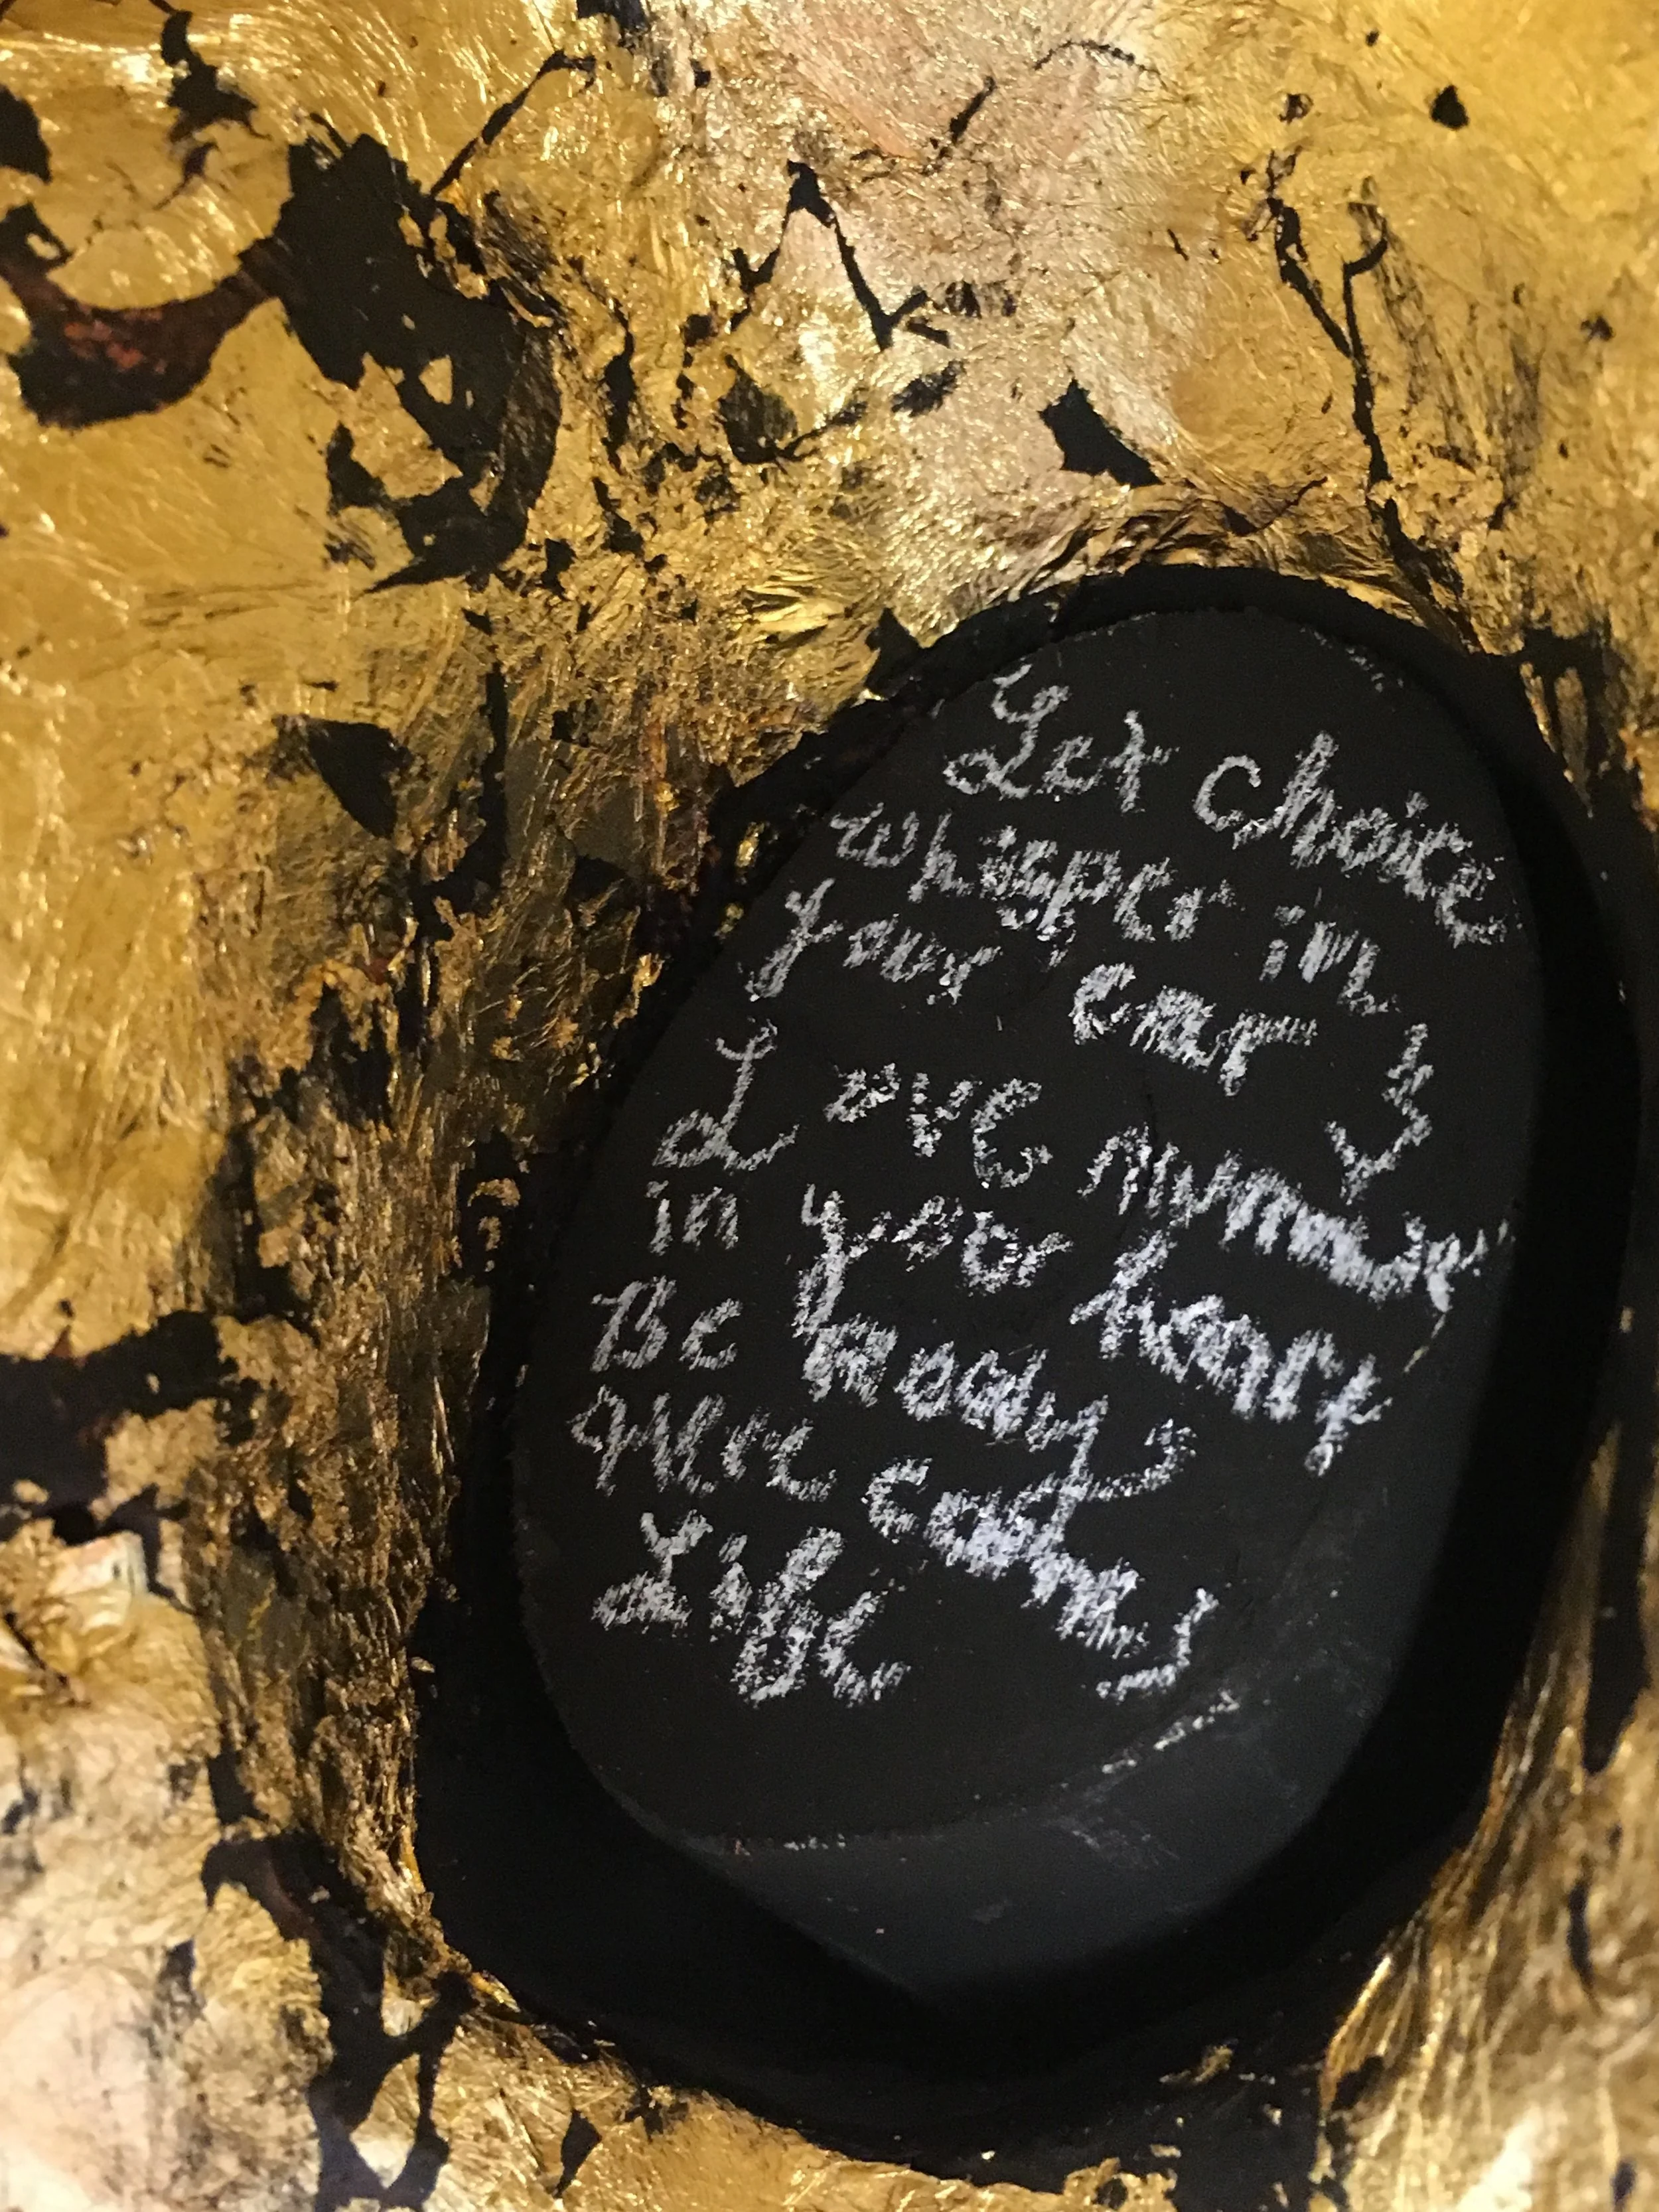 Let choice
whisper in
your ear &
Love murmur
in your heart
Be ready,
Here comes
Life